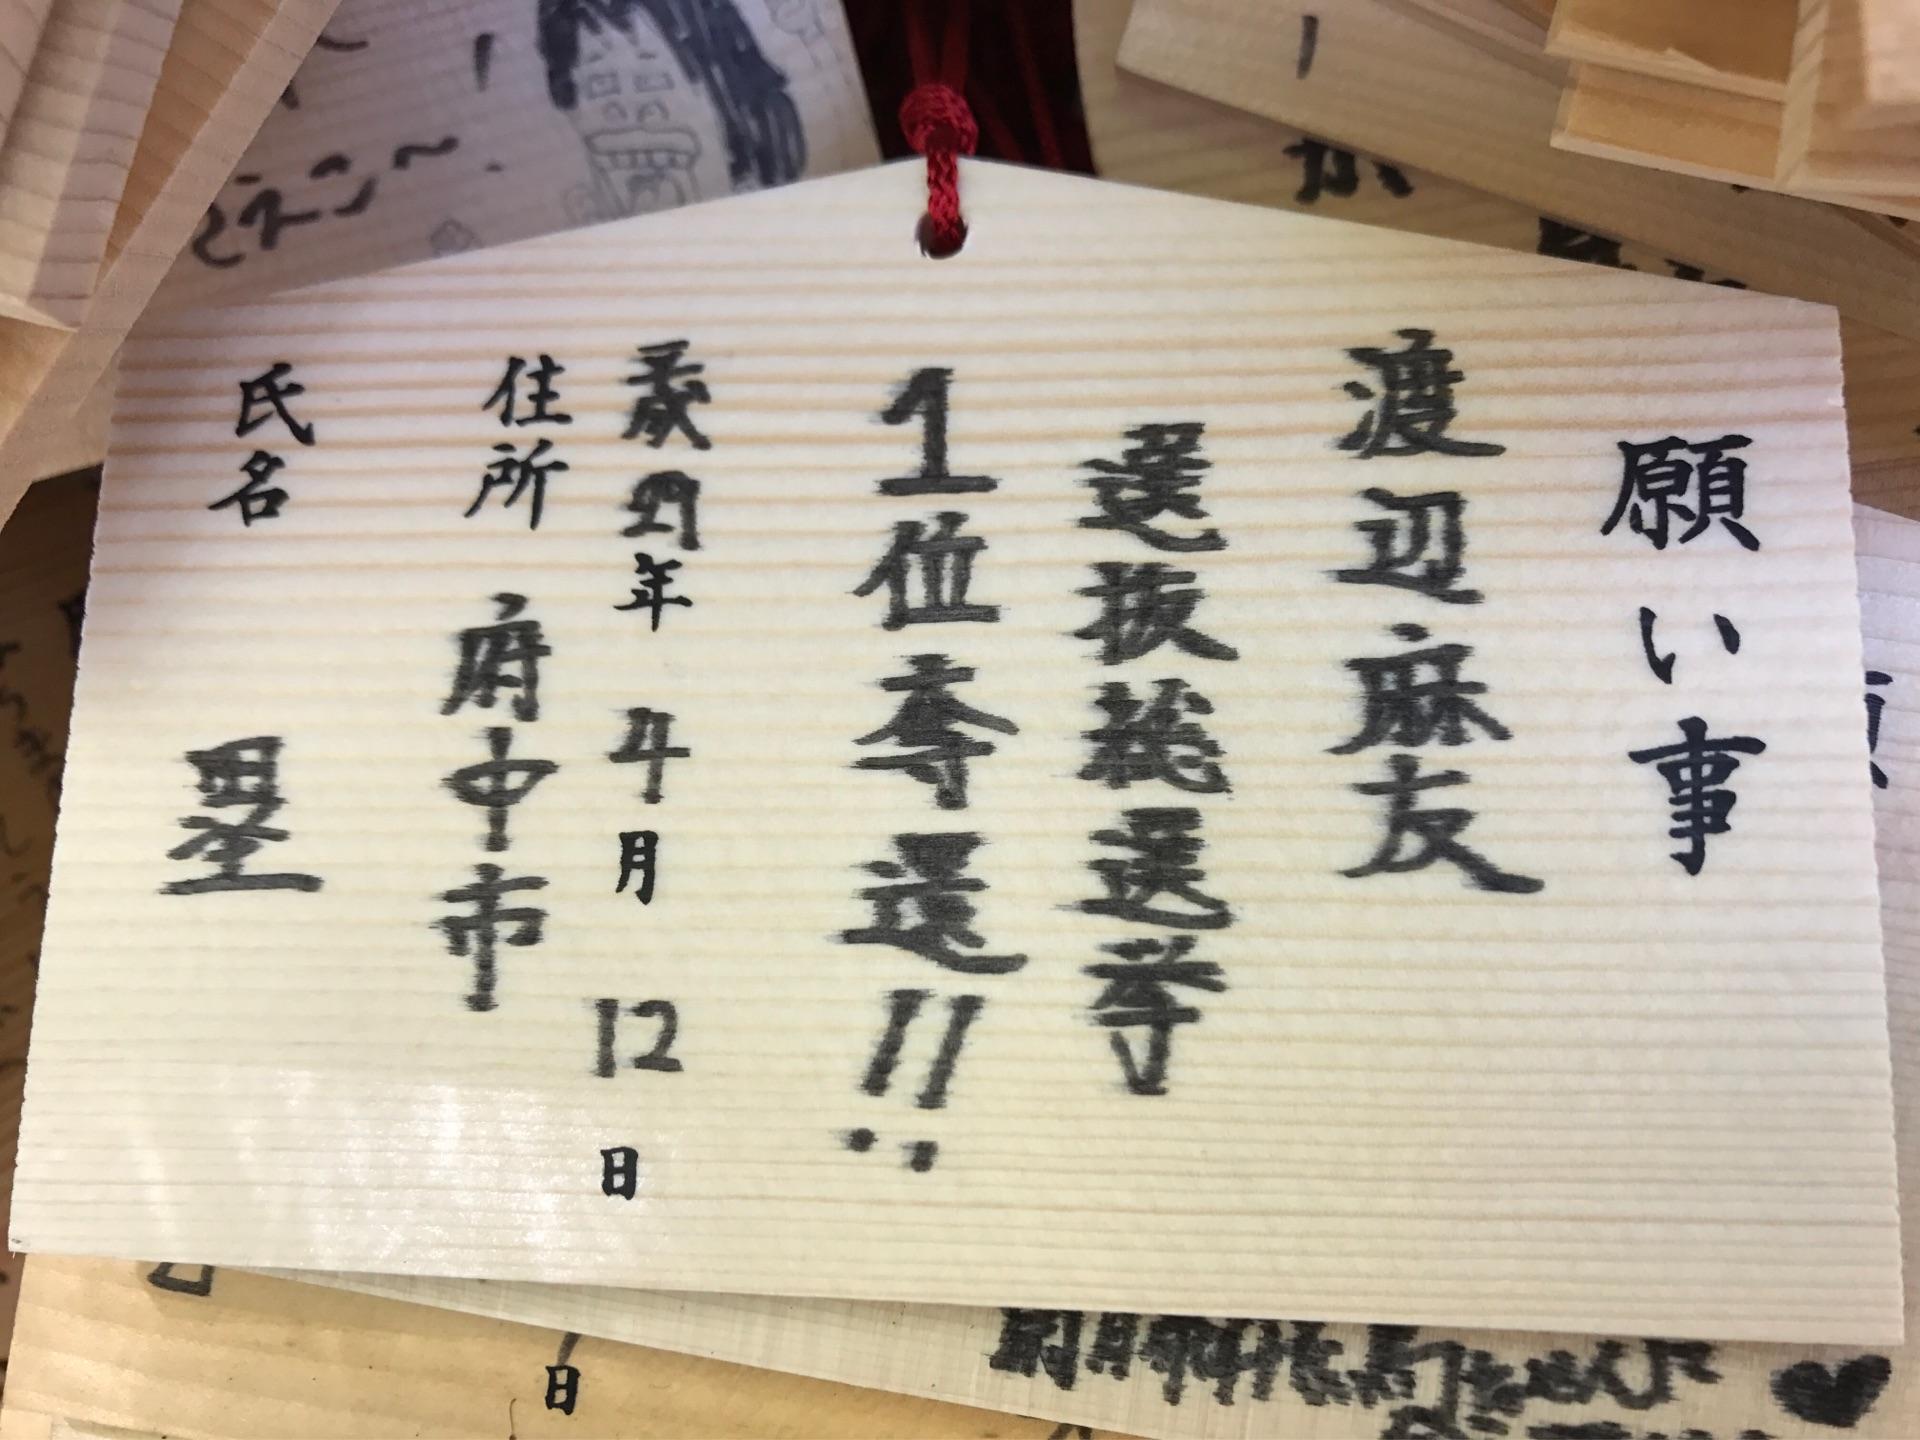 願い事
渡辺麻友
選抜総選挙
1位奪還!!
29年 4月 12日
住所 府中市
氏名 塁
日